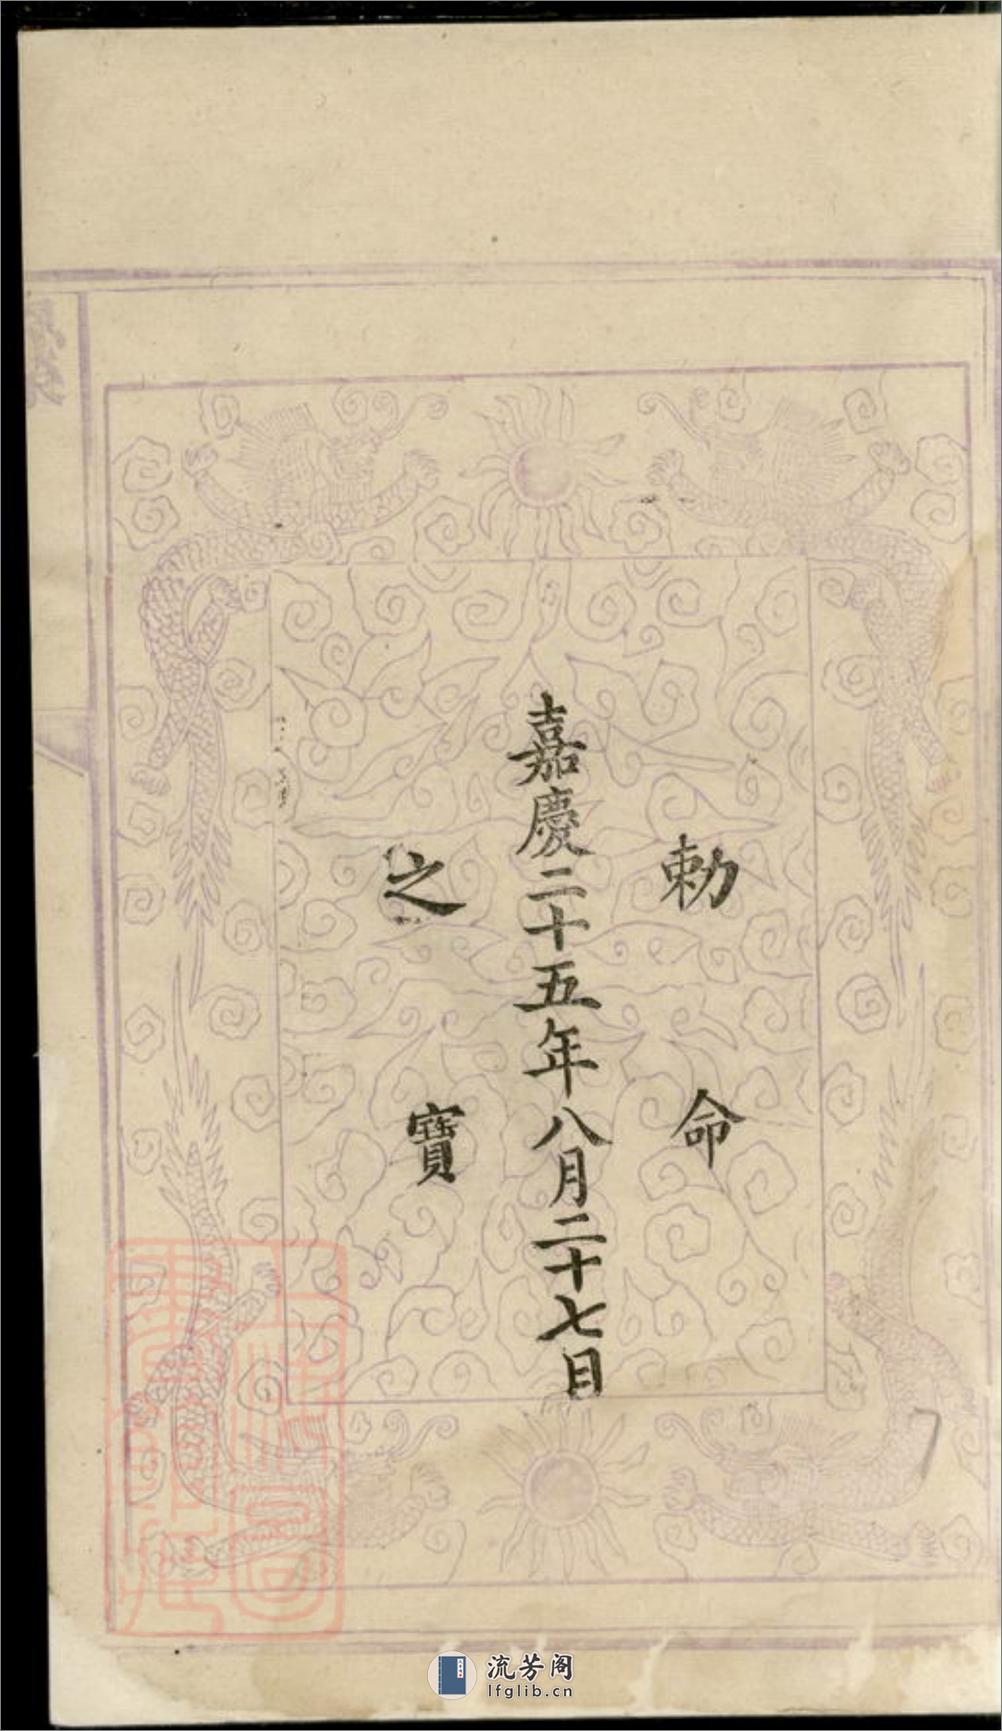 勅命
嘉慶二十五年八月二十七日
之寶
流芳阁
lfglib.cn